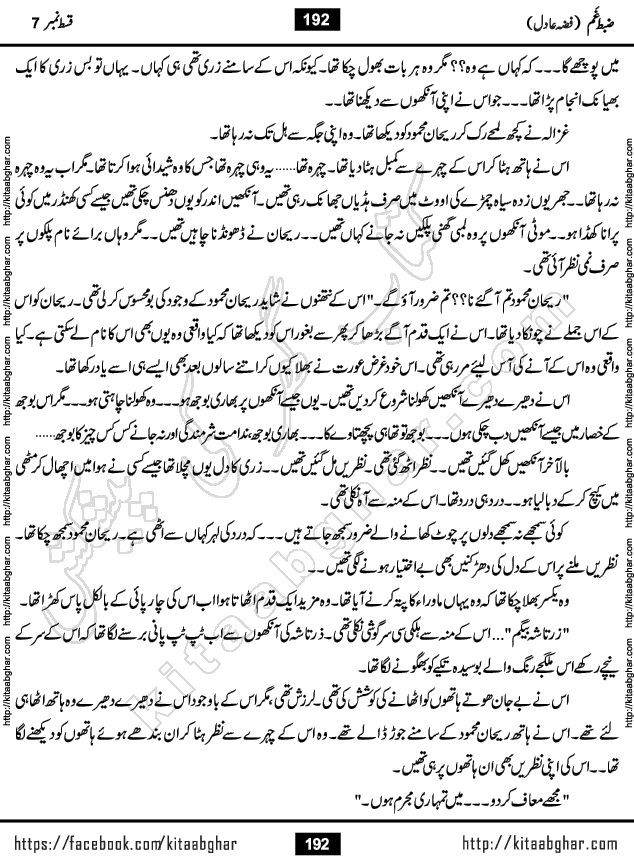 ضبط غم (فضہ عادل)
192
قسط نمبر 7
میں پوچھے گا۔۔۔کہ کہاں ہے وہ؟؟ مگر وہ ہر بات بھول چکا تھا۔ کیونکہ اس کے سامنے زری تھی ہی کہاں۔ یہاں تو بس زری کا ایک
بھیانک انجام پڑا تھا۔۔۔جو اس نے اپنی آنکھوں سے دیکھنا تھا۔۔
غزالہ نے کچھ لمحے رک کر ریحان محمود کو دیکھا تھا۔ وہ اپنی جگہ سے ہل تک نہ رہا تھا۔
اس نے ہاتھ ہٹا کر اس کے چہرے سے کمبل ہٹا دیا تھا۔ چہرہ تھا......یہ وہی چہرہ تھا جس کا وہ شیدائی ہوا کرتا تھا۔ مگر اب یہ وہ چہرہ
نہ رہا تھا۔۔جھریوں زدہ سیاہ چمڑے کی اووٹ میں صرف ہڈیاں جھانک رہی تھیں۔ آنکھیں اندر کو یوں دھنس چکی تھیں جیسے کسی کھنڈر میں کوئی
پرانا کھڈا ہو۔۔موٹی آنکھوں پر وہ لمبی گھنی پلکیں نہ جانے کہاں تھیں۔۔ریحان نے ڈھونڈنا چاہیں تھیں۔۔مگر وہاں برائے نام پلکوں پر
صرف نمی نظر آئی تھی۔
"ریحان محمود تم آ گئے نا؟؟ تم ضرور آؤ گے۔" اس کے نتھنوں نے شاید ریحان محمود کے وجود کی بو محسوس کر لی تھی۔ ریحان کو اس
کے اس جملے نے چونکا دیا تھا۔ اس نے ایک قدم آگے بڑھا کر پھر سے بغور اس کو دیکھا تھا کہ کیا واقعی وہ یوں بھی اس کا نام لے سکتی ہے۔ کیا
واقعی وہ اس کے آنے کی آس لیئے مر رہی تھی۔ اس خود غرض عورت نے بھلا کیوں کر اتنے سالوں بعد بھی ایسے ہی اسے یاد رکھا تھا۔
اس نے دھیرے دھیرے آنکھیں کھولنا شروع کر دیں تھیں۔ یوں جیسے آنکھوں پر بھاری بوجھ ہو۔۔۔وہ کھولنا چاہتی ہو۔۔۔مگر اس بوجھ
کے خصار میں جیسے آنکھیں دب چکی ہوں۔۔۔بوجھ تو تھا ہی پچھتاوے کا۔۔۔بھاری بوجھ ندامت شرمندگی اور نہ جانے کس کس چیز کا بوجھ......
بالآخر آنکھیں کھل گئیں تھیں۔۔نظر اٹھ گئی تھی۔ نظریں مل گئیں تھیں۔۔زری کا دل یوں مچلا تھا جیسے کسی نے ہوا میں اچھال کر مٹھی
میں کیچ کر کے دبا لیا ہو۔۔درد ہی درد تھا۔ اس کے منہ سے آہ نکلی تھی۔
کوئی سمجھے نہ سمجھے دلوں پر چوٹ کھانے والے ضرور سمجھ جاتے ہیں۔۔۔کہ درد کی لہر کہاں سے اٹھی ہے۔ ریحان محمود سمجھ چکا تھا۔
نظریں ملنے پر اس کے دل کی دھڑکنیں بھی بے اختیار ہونے لگی تھی۔۔
وہ یکسر بھلا چکا تھا کہ وہ یہاں ماوراء کا پتہ کرنے آیا تھا۔ وہ مزید ایک قدم اٹھاتا ہوا اب اس کی چار پائی کے بالکل پاس کھڑا تھا۔
"زرتاشہ بیگم"... اس کے منہ سے ہلکی سی سرگوشی نکلی تھی۔ ذرتاشہ کی آنکھوں سے اب ٹپ ٹپ پانی برسنے لگا تھا کہ اس کے سر کے
نیچے رکھے اس ملگجے رنگ والے بوسیدہ تکیے کو بھگونے لگا تھا۔
اس نے بے جان ھوتے ہاتھوں کو اٹھانے کی کوشش کی تھی۔ لرزش تھی، مگر اس کے باوجود اس نے دھیرے دھیرے وہ ہاتھ اٹھا ہی
لئے تھے۔ اس نے ہاتھ ریحان محمود کے سامنے جوڑ ڈالے تھے۔ وہ اس کے چہرے سے نظر ہٹا کر ان بندھے ہوئے ہاتھوں کو دیکھنے لگا
تھا۔۔اس کی اپنی نظریں بھی ان ہاتھوں پر ہی تھیں۔
"مجھے معاف کر دو۔۔۔میں تمہاری مجرم ہوں۔"
http://kitaabghar.com http://kitaabghar.com http://kitaabghar.com http://kitaabghar.com http://kitaabghar.com http://kitaabghar.com
http://kitaabghar.com http://kitaabghar.com http://kitaabghar.com http://kitaabghar.com http://kitaabghar.com http://kitaabghar.com
کتاب گھر کی پیشکش
kitaabghar.com
https://facebook.com/kitaabghar
192
http://kitaabghar.com